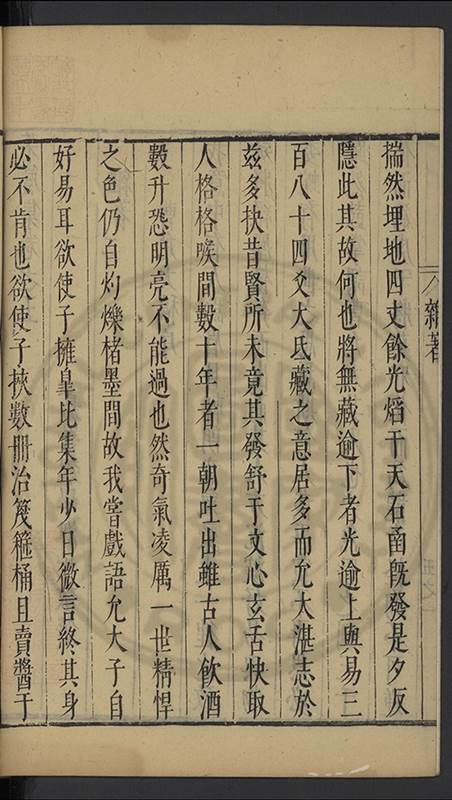 雜著
揣然埋地四丈餘光熖干天石函旣發是夕反
隱此其故何也將無藏逾下者光逾上與易三
百八十四爻大氐藏之意居多而允大湛志於
兹多抉昔賢所未竟其發舒于文心玄舌快取
人格格喉間數十年者一朝吐出雖古人飮酒
數升恐明亮不能過也然奇氣凌厲一世精悍
之色仍自灼爍楮墨間故我嘗戲語允大子自
好易耳欲使子擁臯比集年少日徵言終其身
必不肯也欲使子挾數冊治篾箍桶且賣醬于